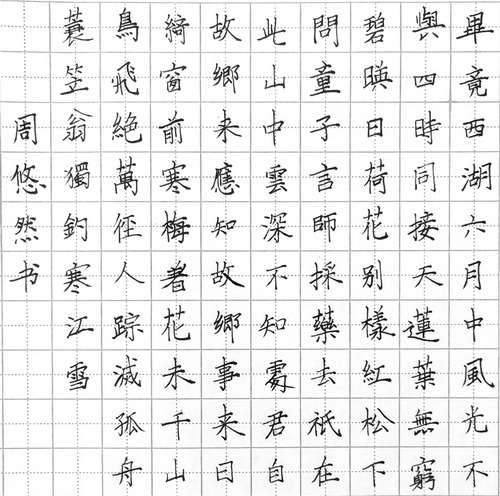 畢竟西湖六月中風光不
與四時同接天蓮葉無窮
碧暎日荷花别樣紅松下
問童子言師採藥去祇在
此山中雲深不知處君自
故鄉来應知故鄉事来日
綺窗前寒梅著花未千山
鳥飛絶萬徑人踪滅孤舟
蓑笠翁獨釣寒江雪
周悠然书